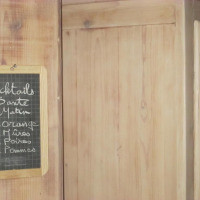 cktails
Santé
Matin
orange
Mûres
Poires
Pommes